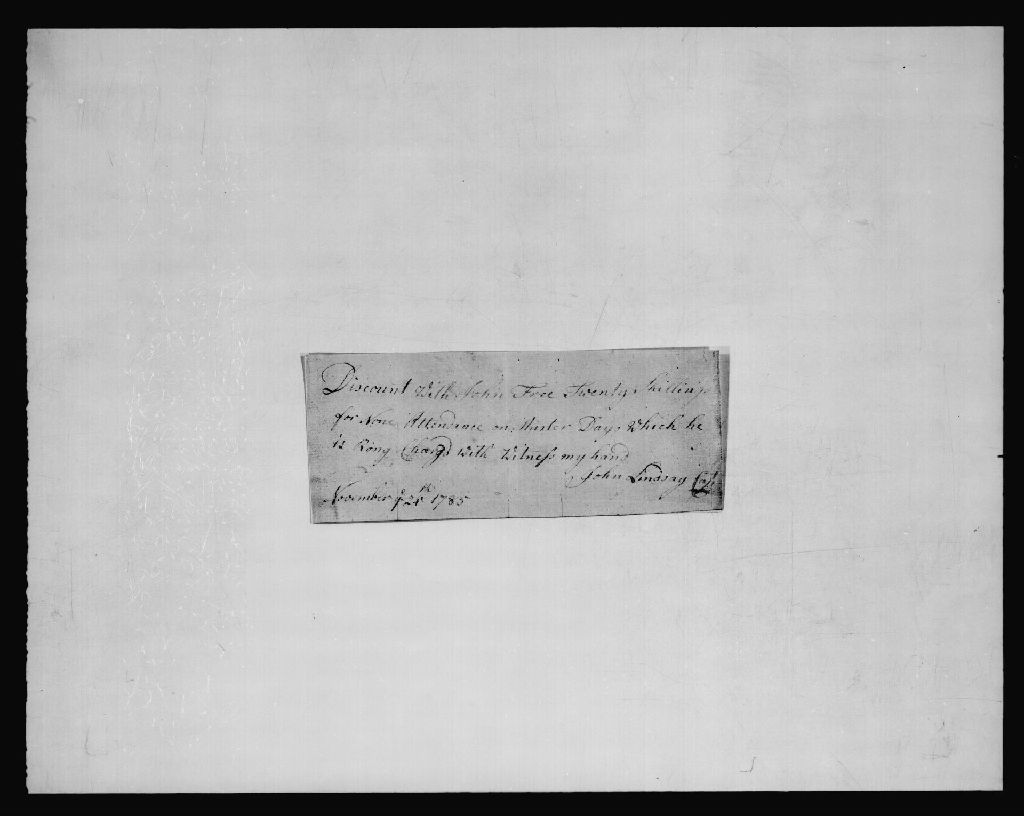 Discount With John Free Twenty Shillings
for None Attendance on Muster Days Which he
is Rong Chargd with Witness my hand
John Lindsay Capt
November ye 21st 1785